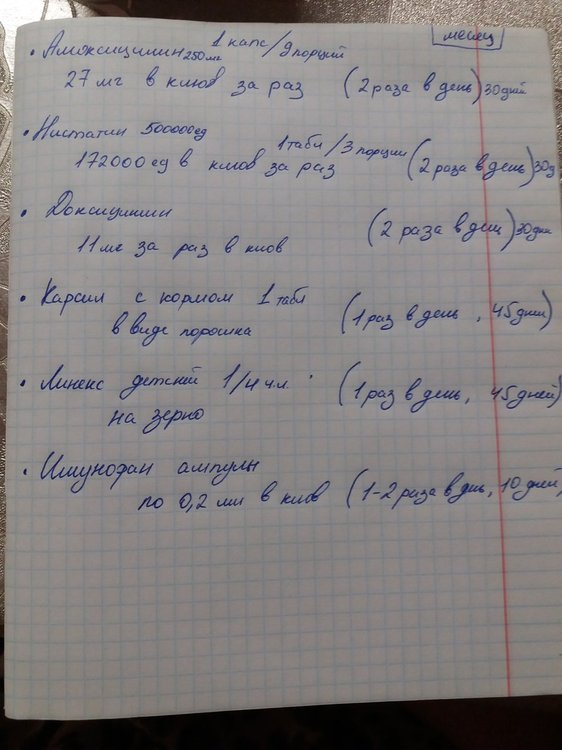 месец
• Амоксицилин 250мг 1 капс/9 порций
27 мг в клюв за раз (2 раза в день) 30 дней
• Нистатин 500000ед 1 табл/3 порции
172000 ед в клюв за раз (2 раза в день) 30 д
• Доксицилин (2 раза в день) 30 дни
11 мг за раз в клюв
• Карсил с кормом 1 табл (1 раз в день, 45 дни)
в виде порошка
• Линекс детский 1/4 ч.л. (1 раз в день, 45 дней)
на зерно
• Имунофан ампулы
по 0,2 мл в клюв (1-2 раза в день, 10 дней)